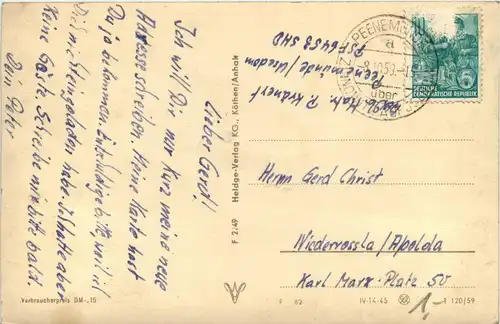 Lieber Gerd!
Ich will Dir nur kurz meine neue
Adresse schreiben. Meine Karte hast
Du ja bekommen. Entschuldige bitte, weil ich
Dich nie eingeladen habe. Ich hatte aber
keine Gäste. Schreibe mir bitte bald.
Dein Peter
Verbraucherpreis DM -,15
F 2/49 Heldge-Verlag KG., Köthen/Anhalt
PEENEMÜNDE
a
über
WOLGAST
DEUTSCHE
DEMOKRATISCHE REPUBLIK
5
P. Krämer
Peenemünde / Usedom
PSF 6453 SHD
Herrn Gerd Christ
Niederrossla / Apolda
Karl Marx-Platz 50
F 82 IV-14-45 1 120/59
1,-